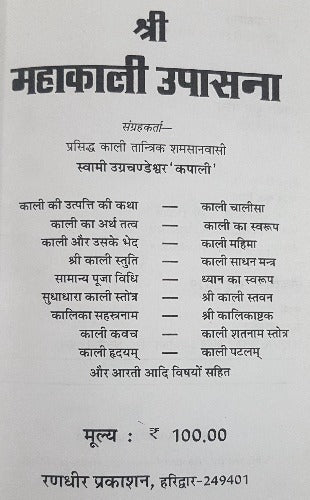 श्री
महाकाली उपासना
संग्रहकर्ता—
प्रसिद्ध काली तान्त्रिक शमसानवासी
स्वामी उग्रचण्डेश्वर 'कपाली'
काली की उत्पत्ति की कथा — काली चालीसा
काली का अर्थ तत्व — काली का स्वरूप
काली और उसके भेद — काली महिमा
श्री काली स्तुति — काली साधन मन्त्र
सामान्य पूजा विधि — ध्यान का स्वरूप
सुधाधारा काली स्तोत्र — श्री काली स्तवन
कालिका सहस्त्रनाम — श्री कालिकाष्टक
काली कवच — काली शतनाम स्तोत्र
काली हृदयम् — काली पटलम्
और आरती आदि विषयों सहित
मूल्य : ₹ 100.00
रणधीर प्रकाशन, हरिद्वार-249401